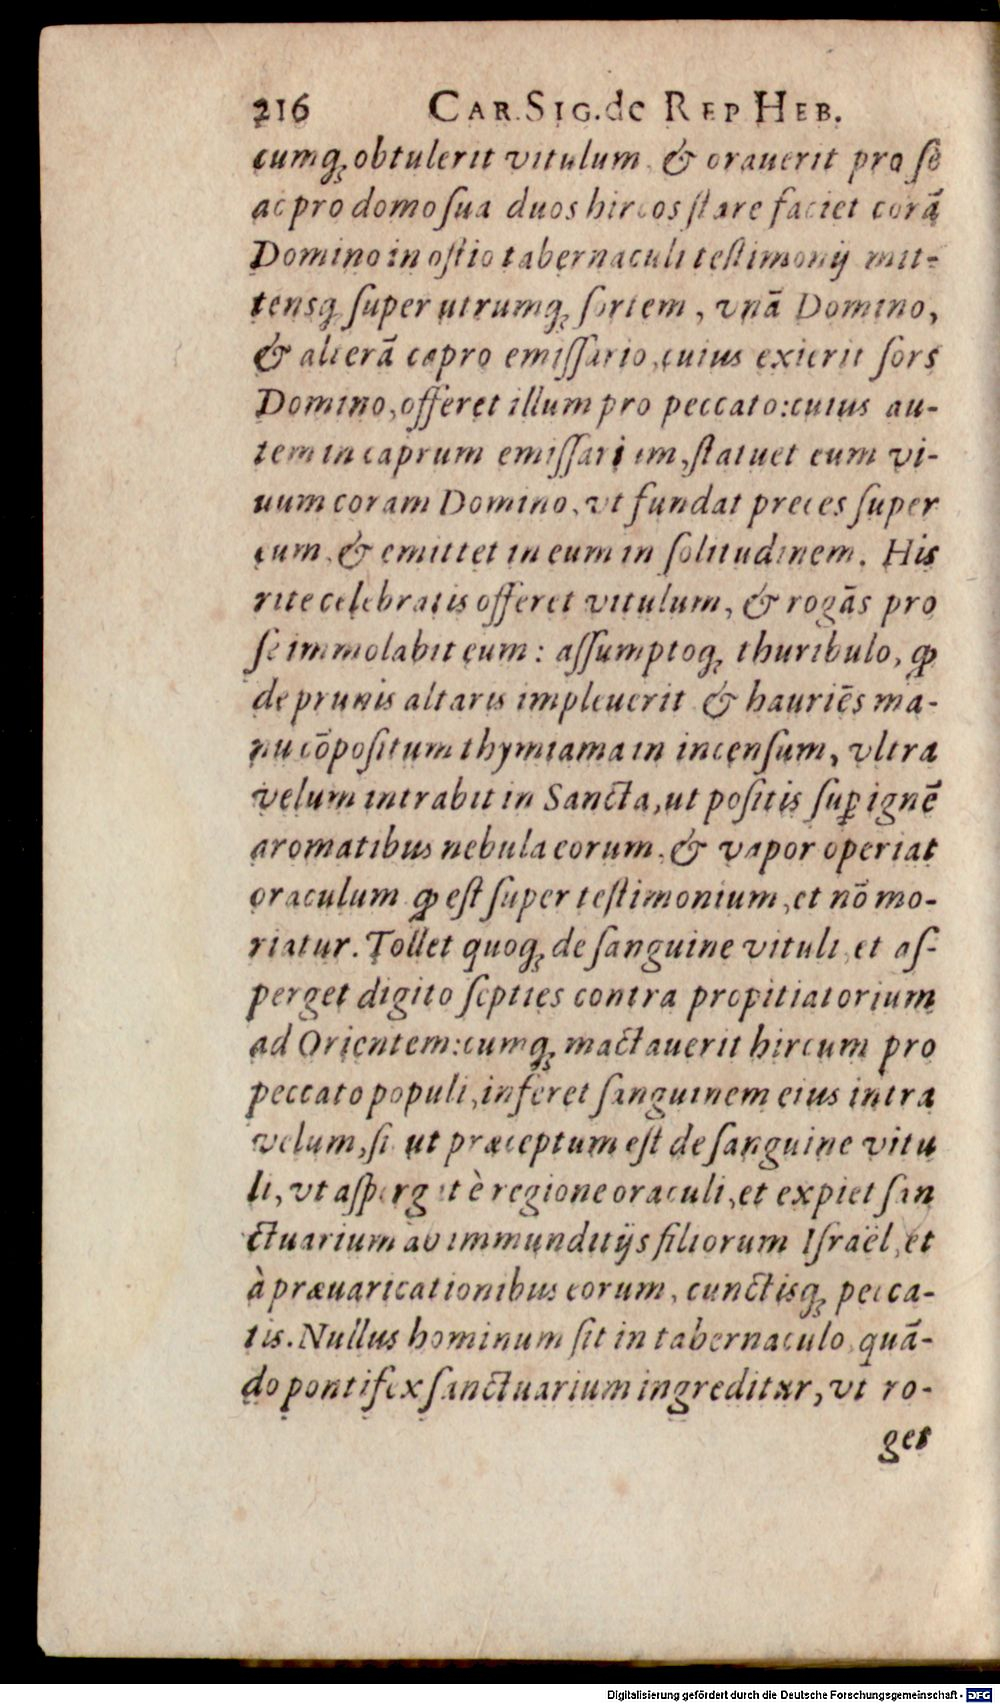 216 CAR. SIG. de REP HEB.
cumq; obtulerit vitulum, & orauerit pro se
ac pro domo ſua duos hircos ſtare faciet corã
Domino in oſtio tabernaculi teſtimonij mit-
tensq; ſuper utrumq; ſortem, vnã Domino,
& alterã capro emiſſario, cuius exierit ſors
Domino, offeret illum pro peccato: cuius au-
tem in caprum emiſſarium, ſtatuet eum vi-
uum coram Domino, vt fundat preces ſuper
eum, & emittet in eum in ſolitudinem. His
rite celebratis offeret vitulum, & rogãs pro
ſe immolabit eum: aſſumptoq; thuribulo, ꝙ
de prunis altaris impleuerit & hauriẽs ma-
nu cõpoſitum thymiama in incenſum, vltra
velum intrabit in Sancta, ut poſitis ſuꝑ ignẽ
aromatibus nebula eorum, & vapor operiat
oraculum ꝙ eſt ſuper teſtimonium, et nõ mo-
riatur. Tollet quoq; de ſanguine vituli, et aſ-
perget digito ſepties contra propitiatorium
ad Orientem: cumq; mactauerit hircum pro
peccato populi, inferet ſanguinem eius intra
velum, ſi ut præceptum eſt de ſanguine vitu
li, vt aſpergat è regione oraculi, et expiet ſan
ctuarium ab immunditijs filiorum Iſraël, et
à præuaricationibus eorum, cunctisq; pecca-
tis. Nullus hominum ſit in tabernaculo, quã-
do pontifex ſanctuarium ingreditur, vt ro-
get
Digitalisierung gefördert durch die Deutsche Forschungsgemeinschaft - DFG